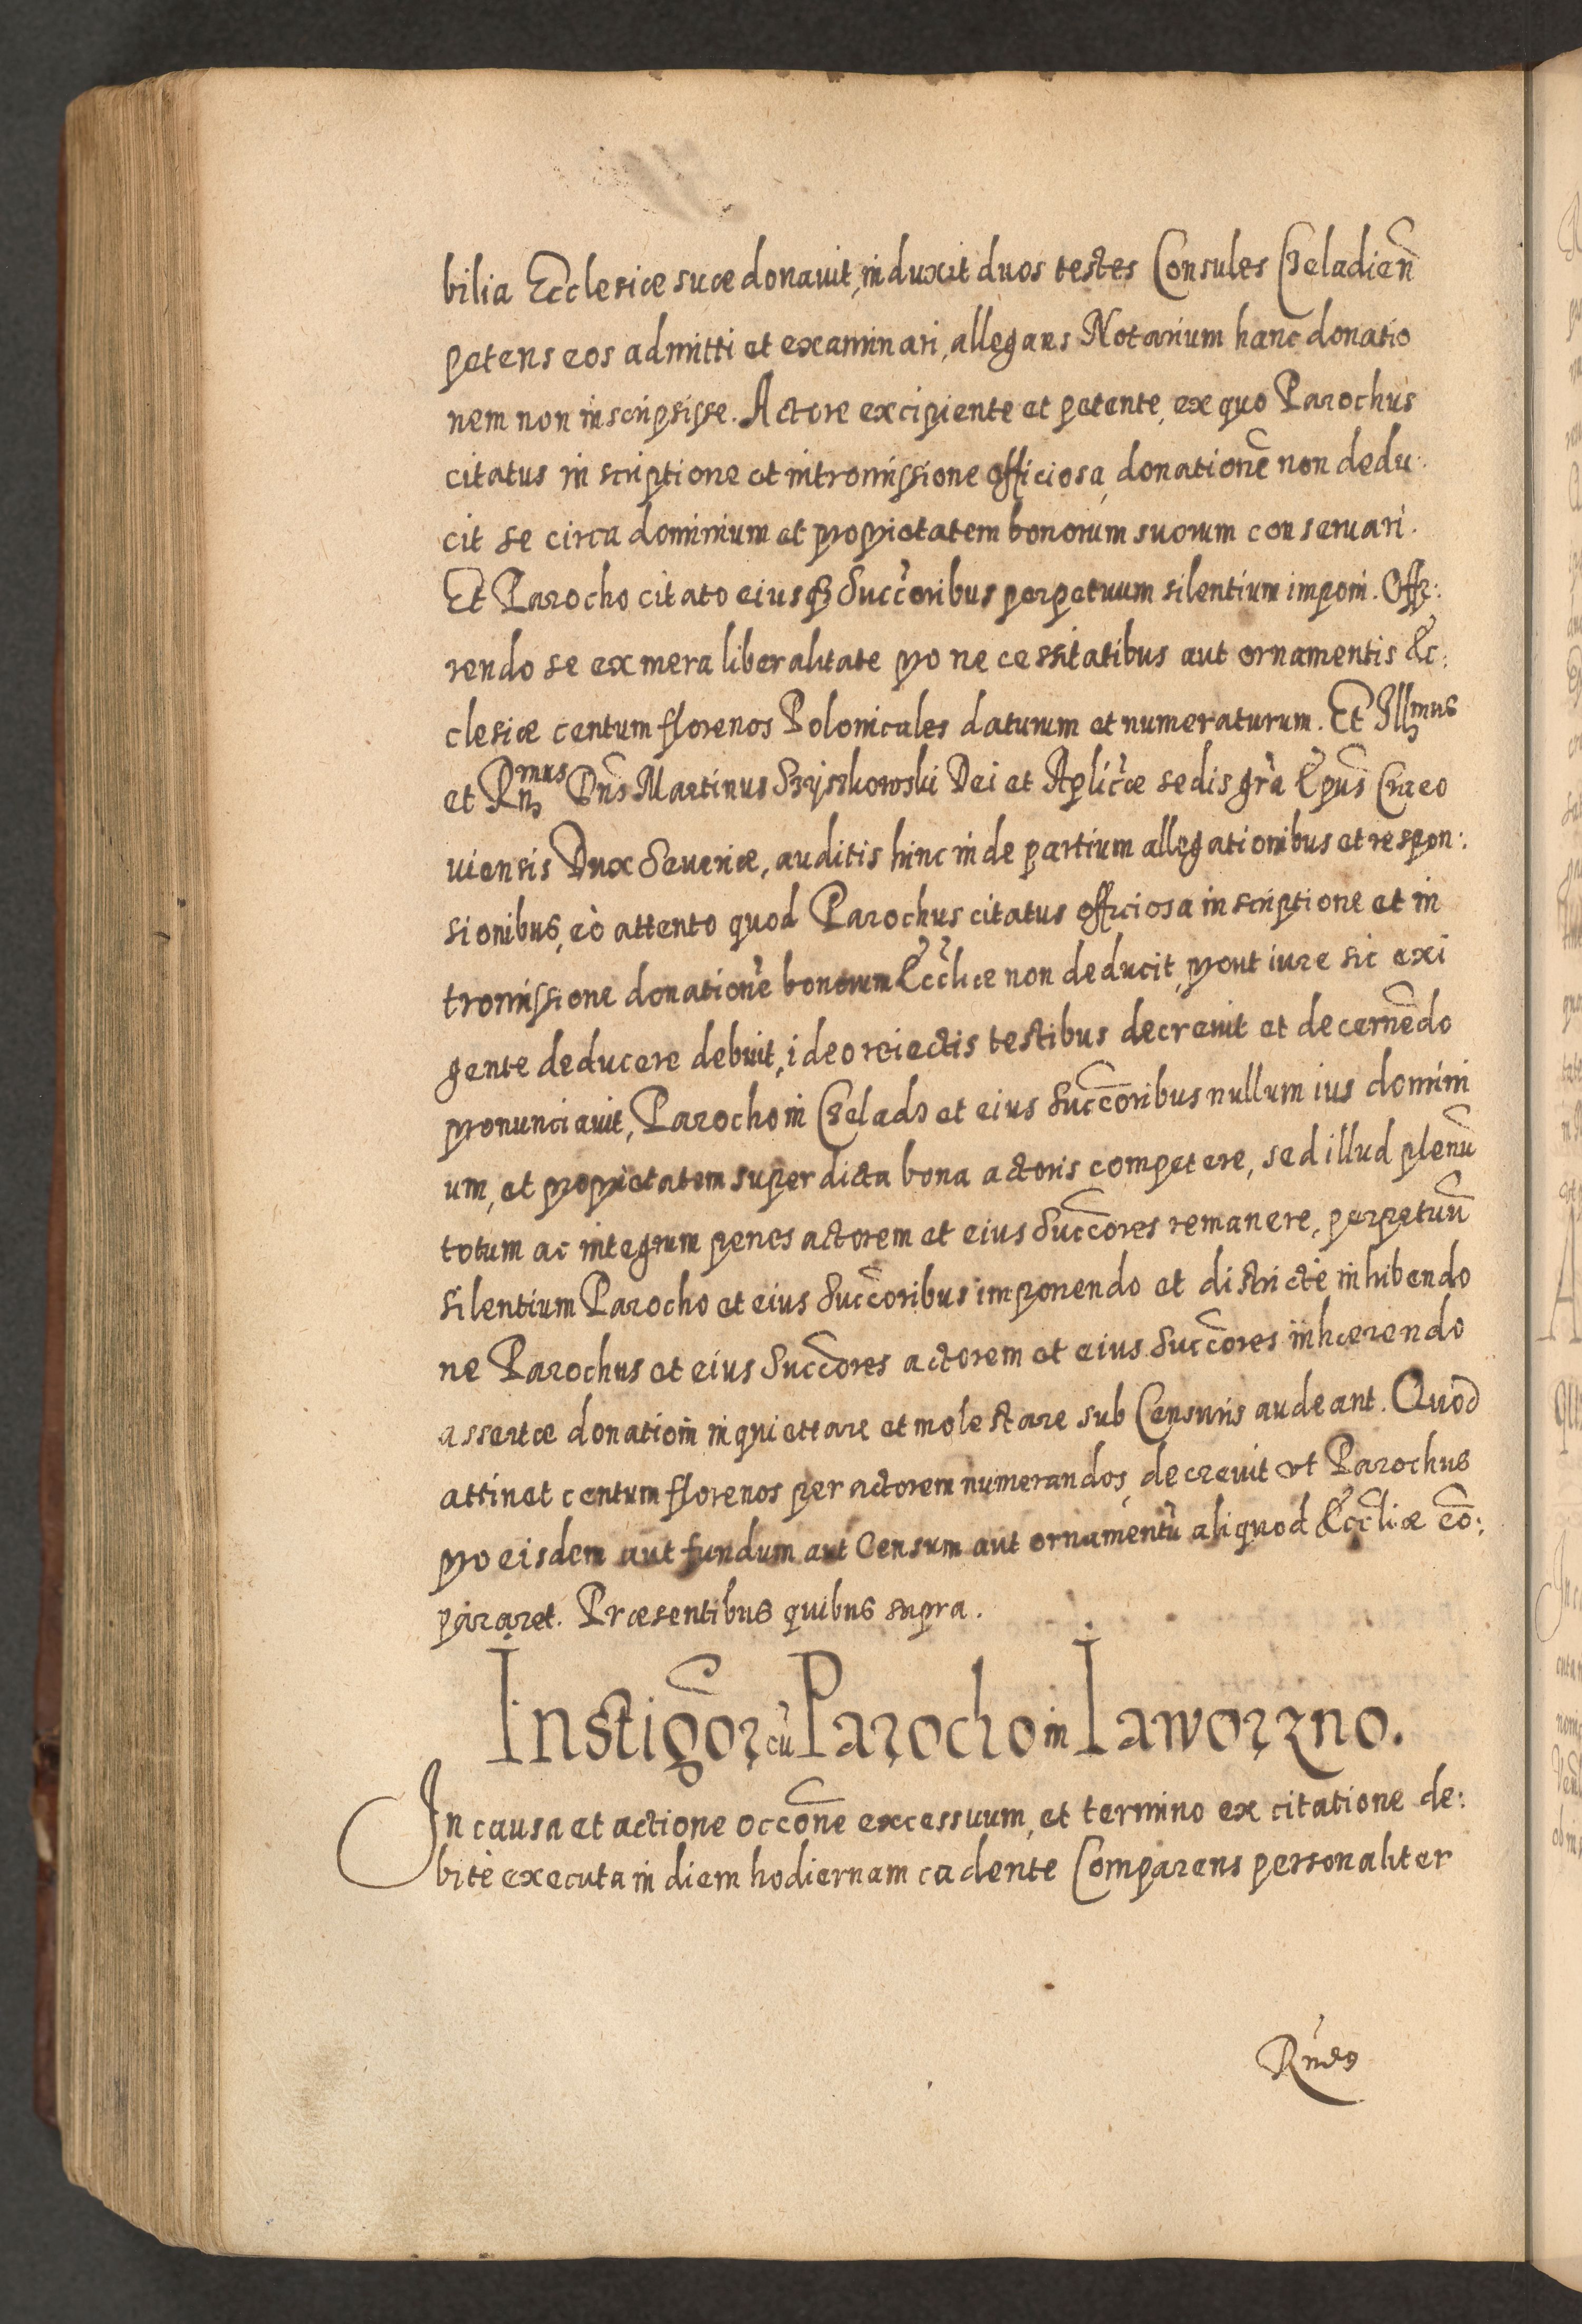 bilia Ecclesiæ suæ donauit, induxit duos testes Consules Czeladien̄
petens eos admitti et examinari, allegans Notarium hanc donatio
nem non inscripsisse. Actore excipiente et petente, ex quo Parochus
citatus inscriptione et intromissione officiosa, donationē non dedu:
cit se circa dominium et proprietatem bonorum suorum conseruari.
Et Parocho citato eiusq₃ Succ̄oribus perpetuum silentium imponi. Offe:
rendo se ex mera liberalitate pro necessitatibus aut ornamentis Ec:
clesiæ centum florenos Polonicales daturum et numeraturum. Et Illmus
et Rnmus Dn̄s Martinus Szyszkowski Dei et Aplicæ sedis grā Ep̄us Craco
uiensis Dux Seueriæ, auditis hinc inde partium allegationibus et respon:
sionibus, eò attento quod Parochus citatus officiosa inscriptione et in
tromissione donationē bonorum Eccliæ non deducit, prout iure sic exi
gente deducere debuit, ideo reiectis testibus decreuit et decernēdo
pronunciauit, Parocho in Czeladz et eius Succ̄oribus nullum ius domini
um, et proprietatem super dicta bona actoris competere, sed illud plenū
totum ac integrum penes actorem et eius Succ̄ores remanere, perpetuū
silentium Parocho et eius Succ̄oribus imponendo et districtè inhibendo
ne Parochus et eius Succ̄ores actorem et eius Succ̄ores inhærendo
assertæ donationi inquiettare et molestare sub Censuris audeant. Quod
attinet centum florenos per actorem numerandos, decreuit vt Parochus
pro eisdem aut fundum aut Censum aut ornamentū aliquod Eccliæ cō:
pararet. Præsentibus quibus supra.
Instigōr cū Parocho in Iaworzno.
In causa et actione occ̄one excessuum, et termino ex citatione de:
bitè executa in diem hodiernam cadente Comparens personaliter
Rn̄dus